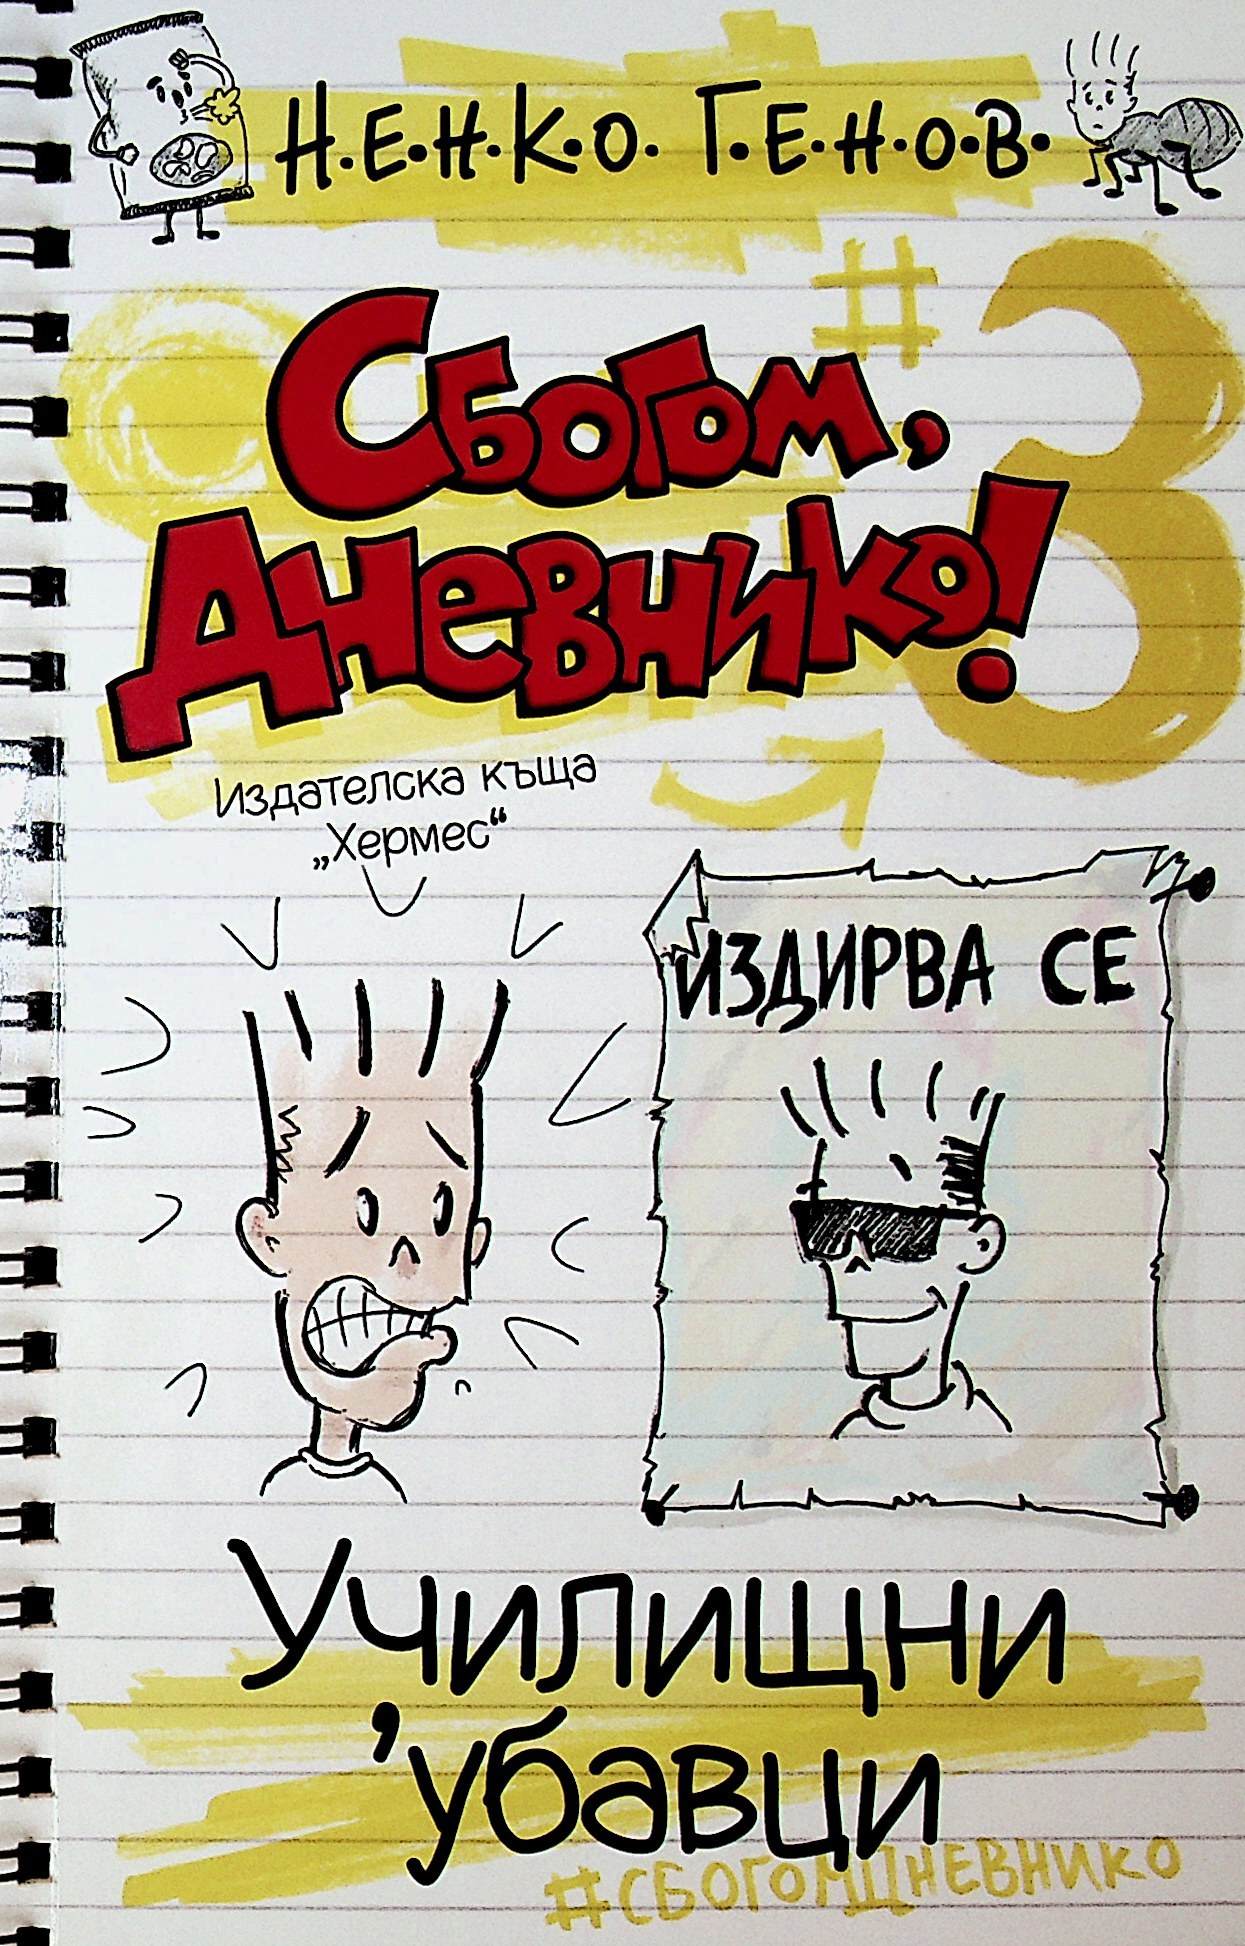 Н.Е.Н.К.О. Г.Е.Н.О.В.
#3
Сбогом,
Дневнико!
Издателска къща
„Хермес“
ИЗДИРВА СЕ
Училищни
'убавци
#СБОГОМДНЕВНИКО